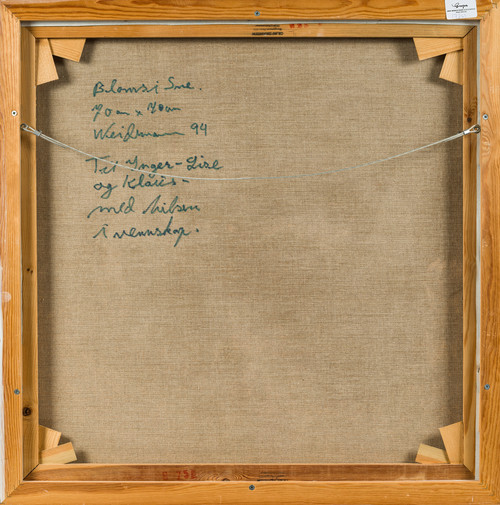 Blomst i Sne.
70 cm x 70 cm
Weidemann 94
Til Inger-Lise
og Klaus-
med hilsen
i vennskap.